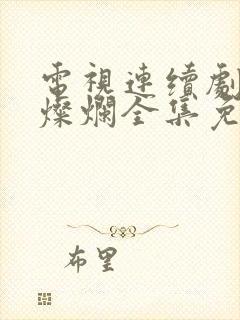 電視連續劇
燦爛全集免
布里